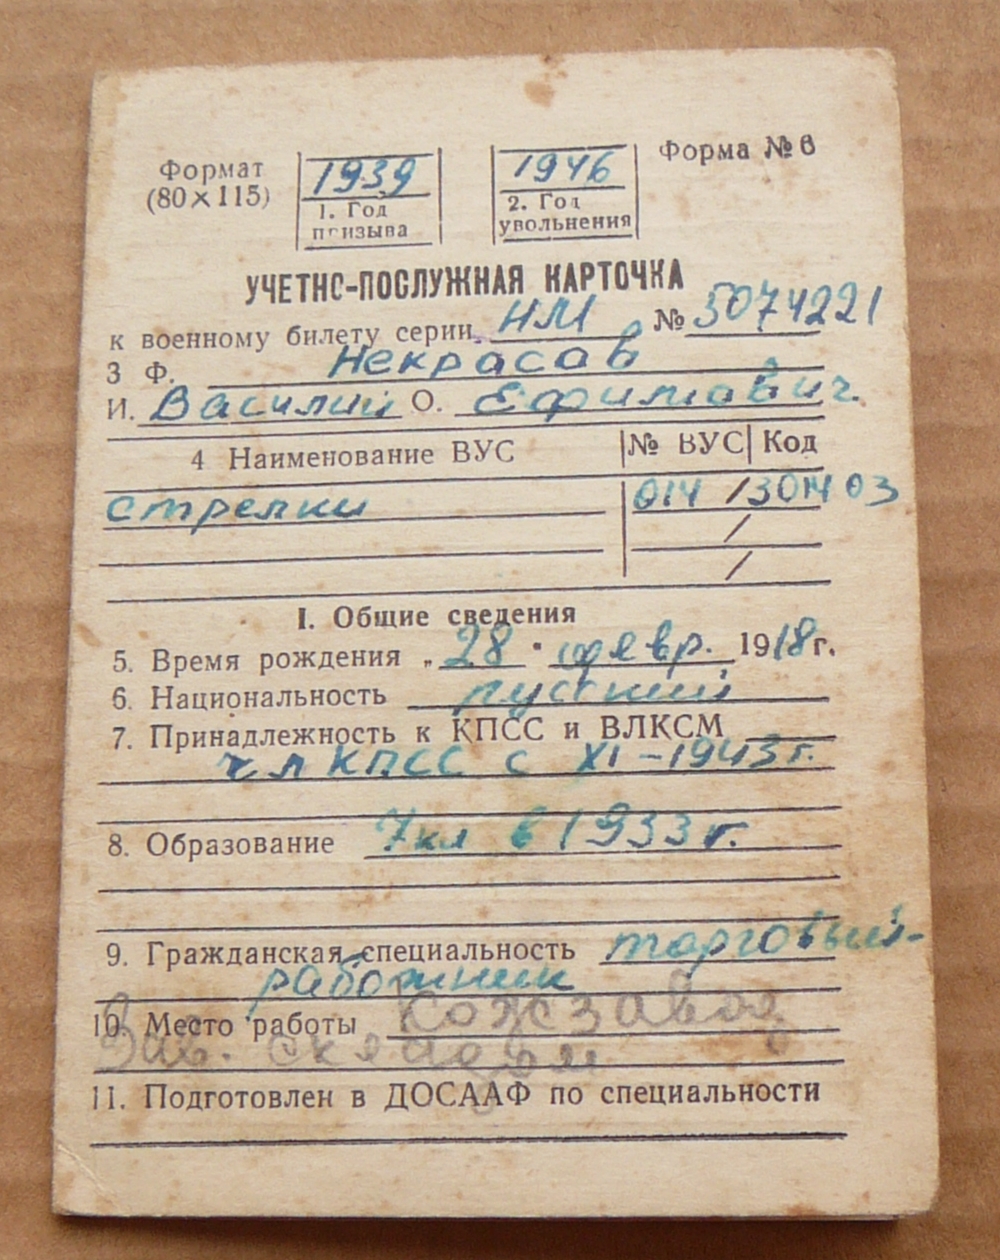 Формат
(80×115)
1939
1. Год
призыва
1946
2. Год
увольнения
Форма № 6
УЧЕТНО-ПОСЛУЖНАЯ КАРТОЧКА
к военному билету серии НМ № 5074221
3 Ф. Некрасов
И. Василий О. Ефимович.
4 Наименование ВУС № ВУС Код
стрелки 014 / 301403
/
/
I. Общие сведения
5. Время рождения „28" февр. 1918г.
6. Национальность русский
7. Принадлежность к КПСС и ВЛКСМ
чл КПСС с XI-1943г.
8. Образование 7кл в 1933г.
9. Гражданская специальность торговый-
работник
10. Место работы Кожзавод
Зав. складом
11. Подготовлен в ДОСААФ по специальности